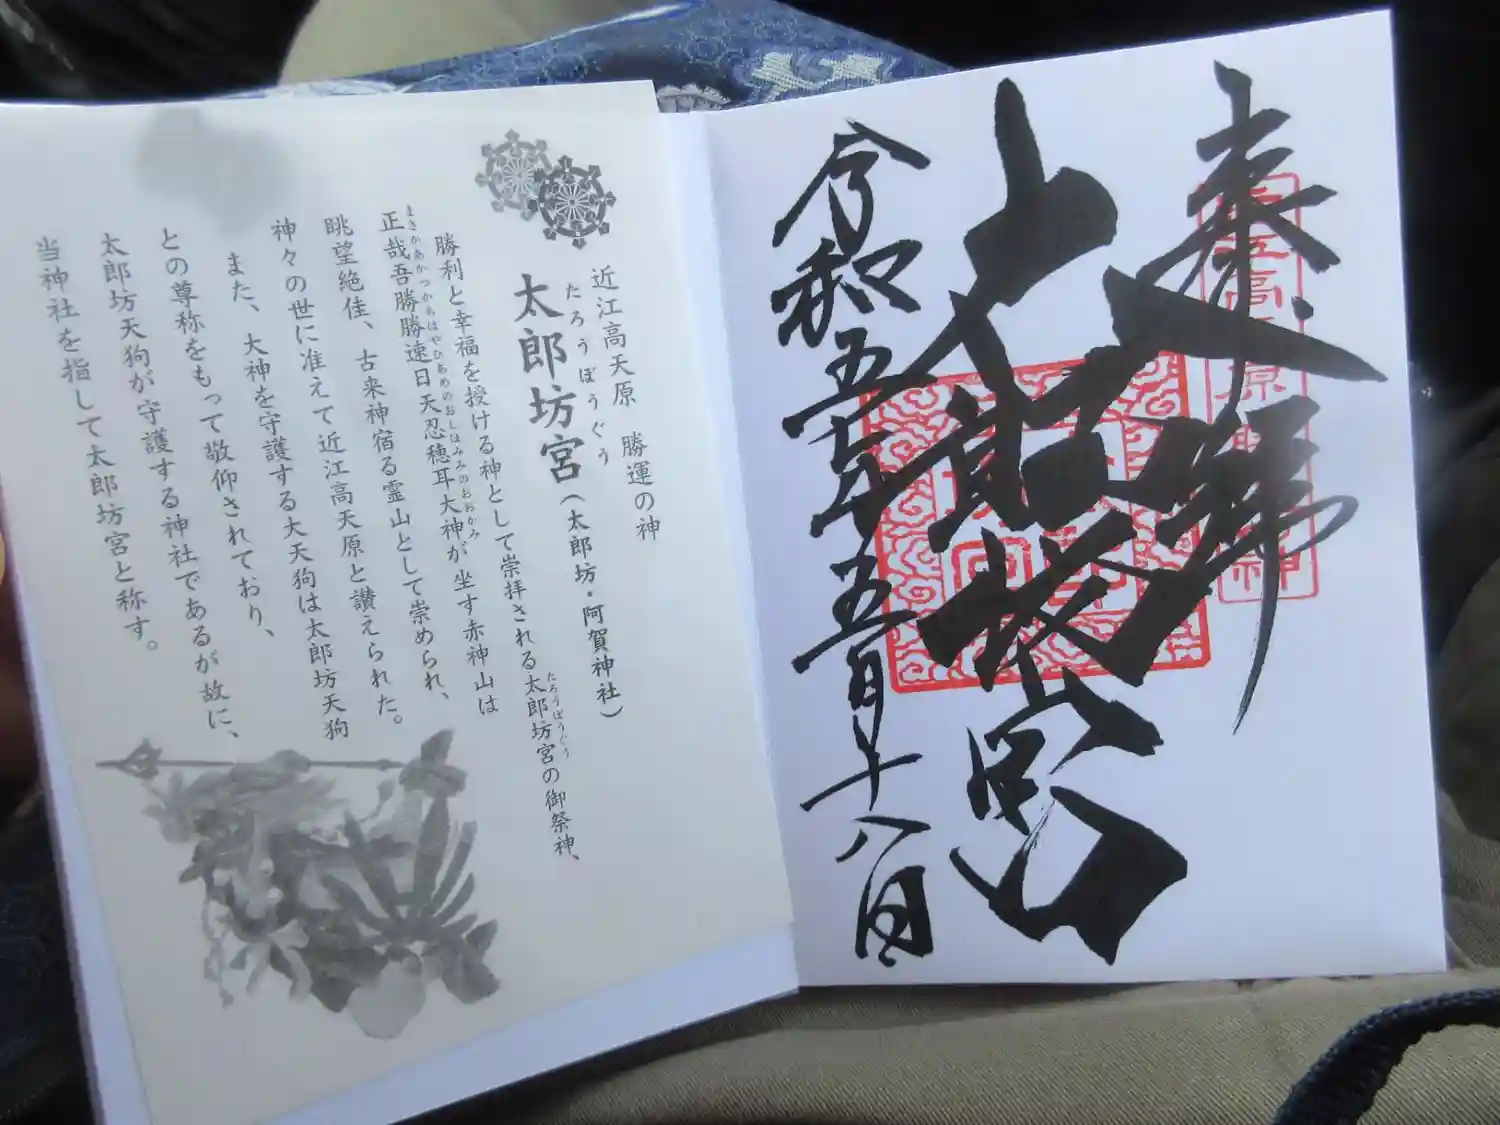 奉拝
太郎坊宮
令和五年五月十八日
近江高天原 勝運の神
たろうぼうぐう
太郎坊宮（太郎坊・阿賀神社）
たろうぼうぐう
勝利と幸福を授ける神として崇拝される太郎坊宮の御祭神、
まさかあかつかちはやひあめのおしほみみのおおかみ
正哉吾勝勝速日天忍穂耳大神が坐す赤神山は
眺望絶佳、古来神宿る霊山として崇められ、
神々の世に准えて近江高天原と讃えられた。
また、大神を守護する大天狗は太郎坊天狗
との尊称をもって敬仰されており、
太郎坊天狗が守護する神社であるが故に、
当神社を指して太郎坊宮と称す。